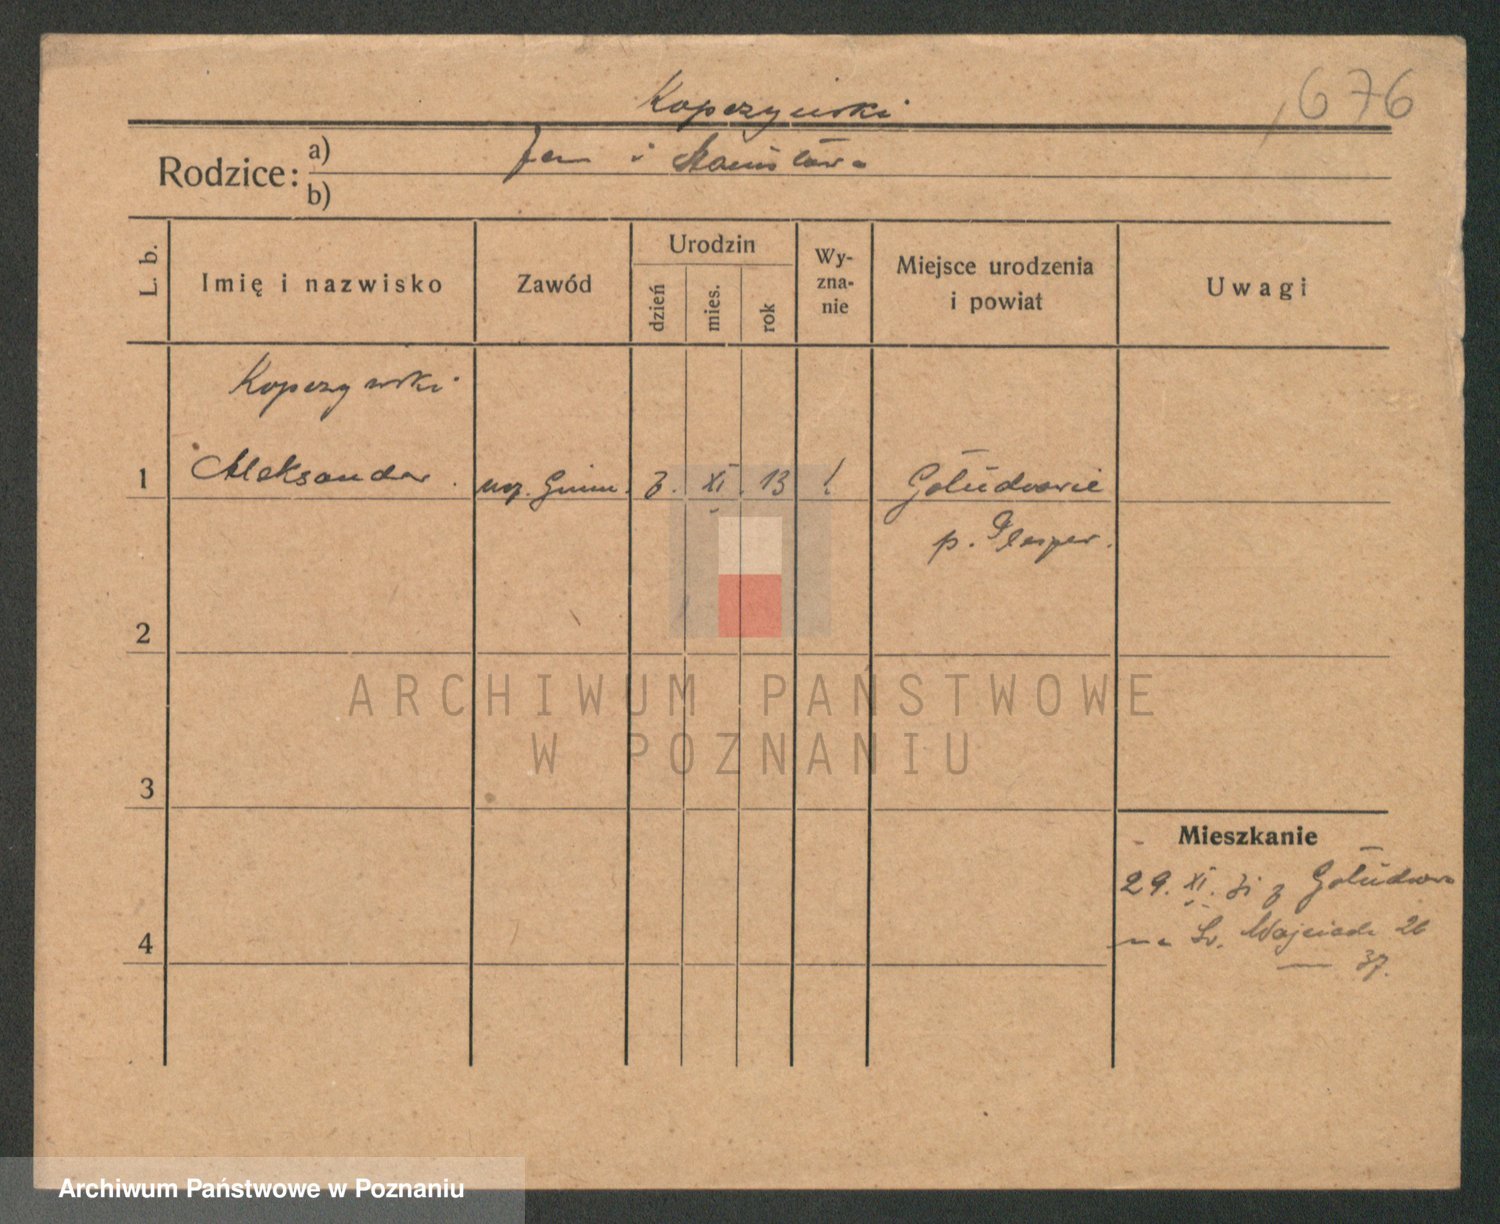 676
Kopczyński
Rodzice: a) Jan i Stanisława
b)
L. b. Imię i nazwisko Zawód Urodzin dzień mies. rok Wy-zna-nie Miejsce urodzenia i powiat Uwagi
Kopczyński
1 Aleksander. ucz. Gimn. 3. XI. 13
p.
2
ARCHIWUM PAŃSTWOWE
W POZNANIU
3
Mieszkanie
29. XI. z
4 na Św. Wojciech 26
37.
Archiwum Państwowe w Poznaniu